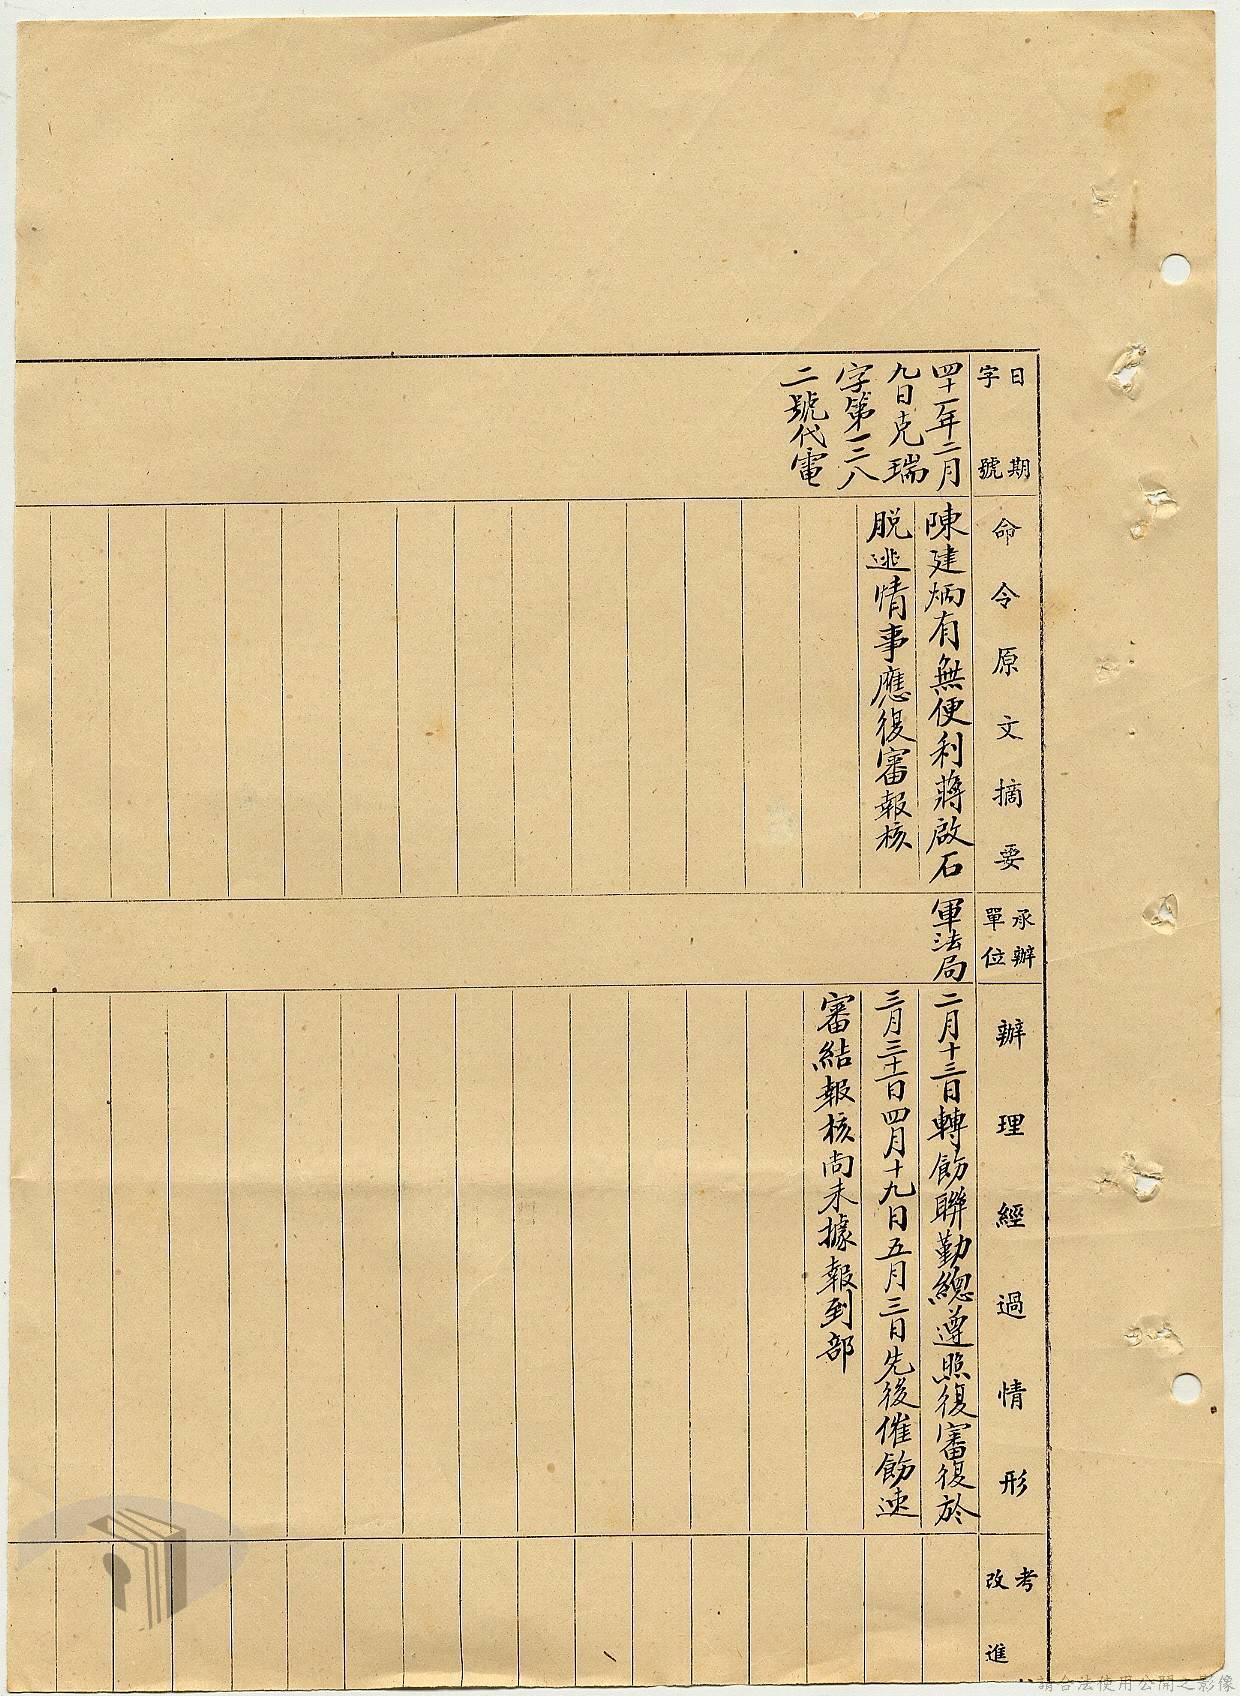 日期
字號
命令原文摘要
承辦
單位
辦理經過情形
考
改進
四十一年二月
九日克瑞
字第一三八
二號代電
陳建炳有無便利蔣啟石
脫逃情事應復審報核
軍法局
二月十三日轉飭聯勤總遵照復審復於
三月三十一日四月十九日五月三日先後催飭速
審結報核尚未據報到部
請合法使用公開之影像